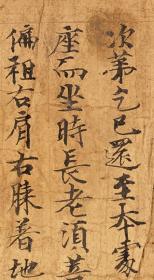 次第乞已還至本處
座而坐時長老須菩
偏袒右肩右膝着地